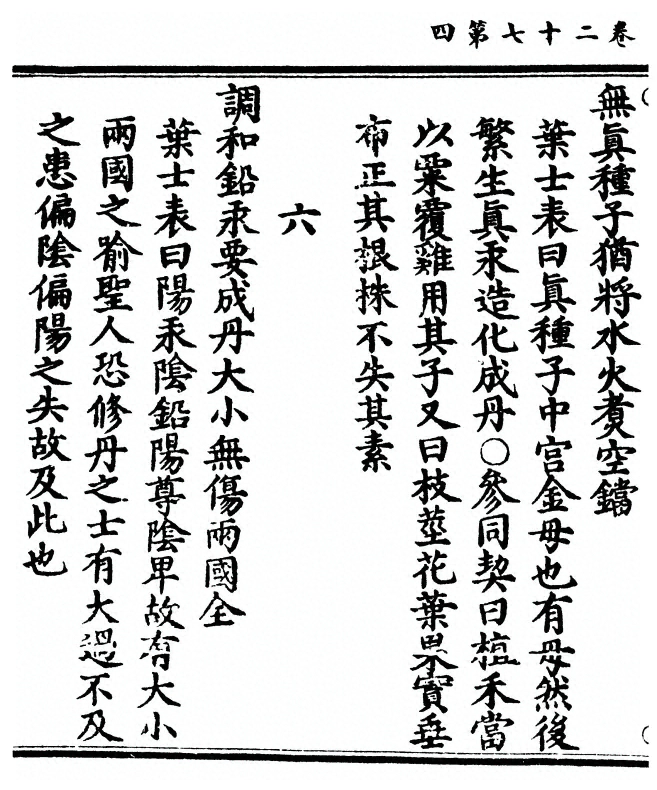 四第七十二卷
無眞種子猶將水火煑空鐺
葉士表曰眞種子中宮金母也有母然後
繁生眞汞造化成丹○參同契曰植禾當
以粟覆雞用其子又曰枝莖花葉果實垂
布正其根株不失其素
六
調和鉛汞要成丹大小無傷兩國全
葉士表曰陽汞陰鉛陽尊陰卑故有大小
兩國之喻聖人恐修丹之士有大過不及
之患偏陰偏陽之失故及此也